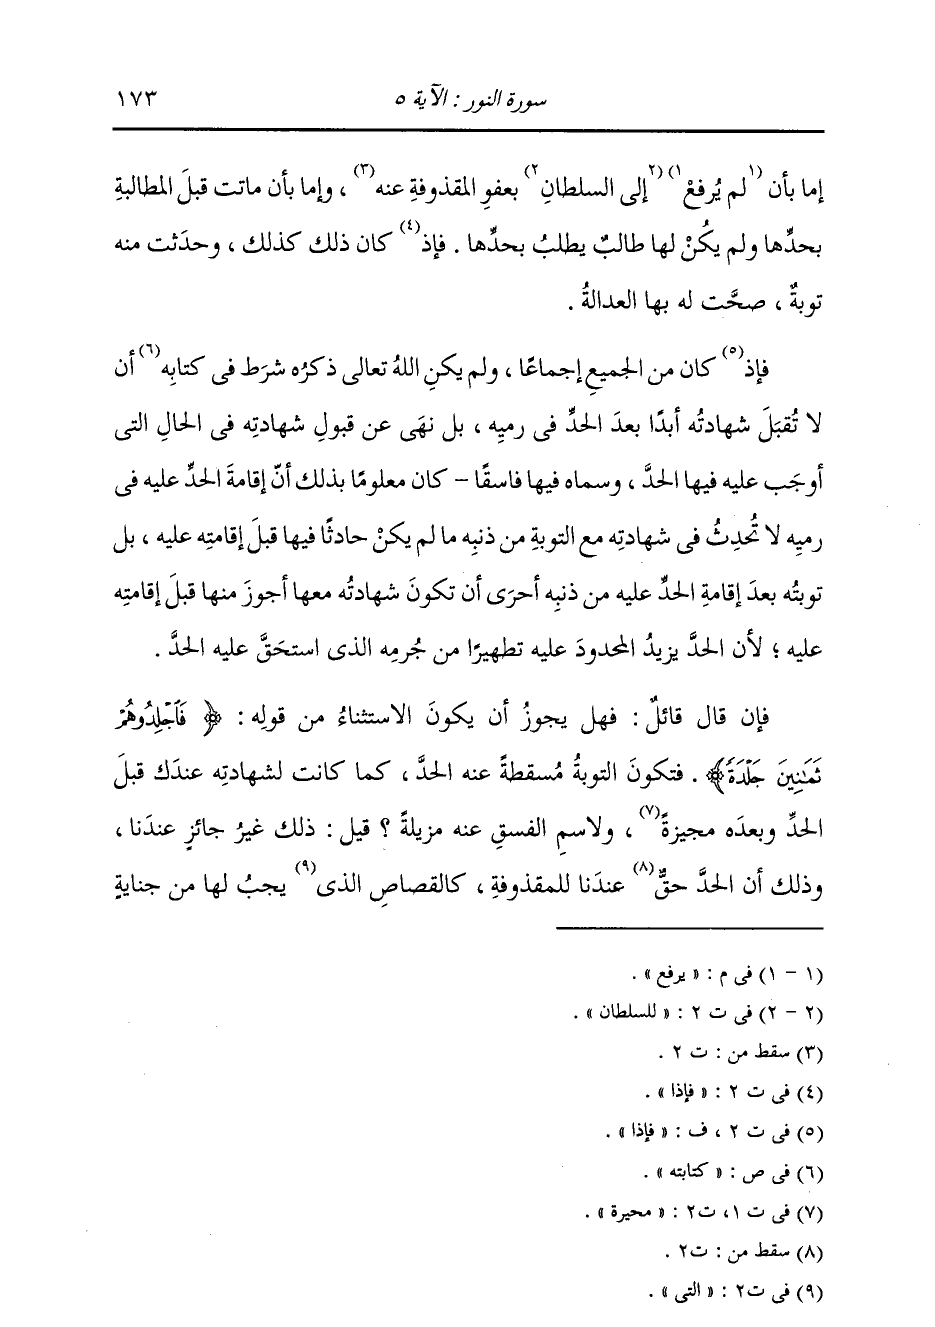 سورة النور : الآية ٥ ١٧٣
إما بأن (١لم يُرفعْ١) (٢إلى السلطانِ٢) بعفوِ المقذوفةِ عنه(٣) ، وإما بأن ماتت قبلَ المطالبةِ
بحدِّها ولم يكُنْ لها طالبٌ يطلبُ بحدِّها . فإذ(٤) كان ذلك كذلك ، وحدَثت منه
توبةٌ ، صحَّت له بها العدالةُ .
فإذ(٥) كان من الجميعِ إجماعًا ، ولم يكنِ اللهُ تعالى ذكرُه شرَط فى كتابِه(٦) أن
لا تُقبَلَ شهادتُه أبدًا بعدَ الحدِّ فى رميِه ، بل نهَى عن قبولِ شهادتِه فى الحالِ التى
أوجَب عليه فيها الحدَّ ، وسماه فيها فاسقًا – كان معلومًا بذلك أنّ إقامةَ الحدِّ عليه فى
رميِه لا تُحدِثُ فى شهادتِه مع التوبةِ من ذنبِه ما لم يكنْ حادثًا فيها قبلَ إقامتِه عليه ، بل
توبتُه بعدَ إقامةِ الحدِّ عليه من ذنبِه أحرَى أن تكونَ شهادتُه معها أجوزَ منها قبلَ إقامتِه
عليه ؛ لأن الحدَّ يزيدُ المحدودَ عليه تطهيرًا من جُرمِه الذى استحَقَّ عليه الحدَّ .
فإن قال قائلٌ : فهل يجوزُ أن يكونَ الاستثناءُ من قولِه : ﴿ فَٱجْلِدُوهُمْ
ثَمَٰنِينَ جَلْدَةً﴾ . فتكونَ التوبةُ مُسقطةً عنه الحدَّ ، كما كانت لشهادتِه عندَك قبلَ
الحدِّ وبعدَه مجيزةً(٧) ، ولاسمِ الفسقِ عنه مزيلةً ؟ قيل : ذلك غيرُ جائزٍ عندَنا ،
وذلك أن الحدَّ حقٌّ(٨) عندَنا للمقذوفةِ ، كالقصاصِ الذى(٩) يجبُ لها من جنايةٍ
(١ – ١) فى م : « يرفع » .
(٢ – ٢) فى ت ٢ : « للسلطان » .
(٣) سقط من : ت ٢ .
(٤) فى ت ٢ : « فإذا » .
(٥) فى ت ٢ ، ف : « فإذا » .
(٦) فى ص : « كتابته » .
(٧) فى ت ١، ت٢ : « محيرة » .
(٨) سقط من : ت٢ .
(٩) فى ت٢ : « التى » .